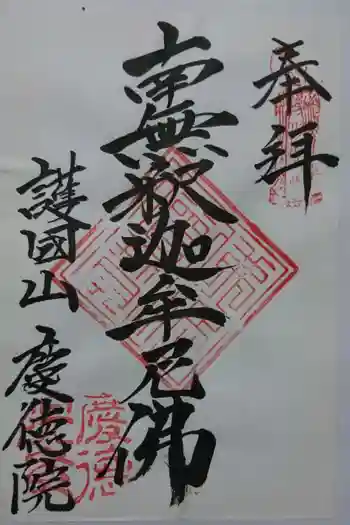 奉拝
南無釈迦牟尼佛
護國山
慶徳院
慶徳